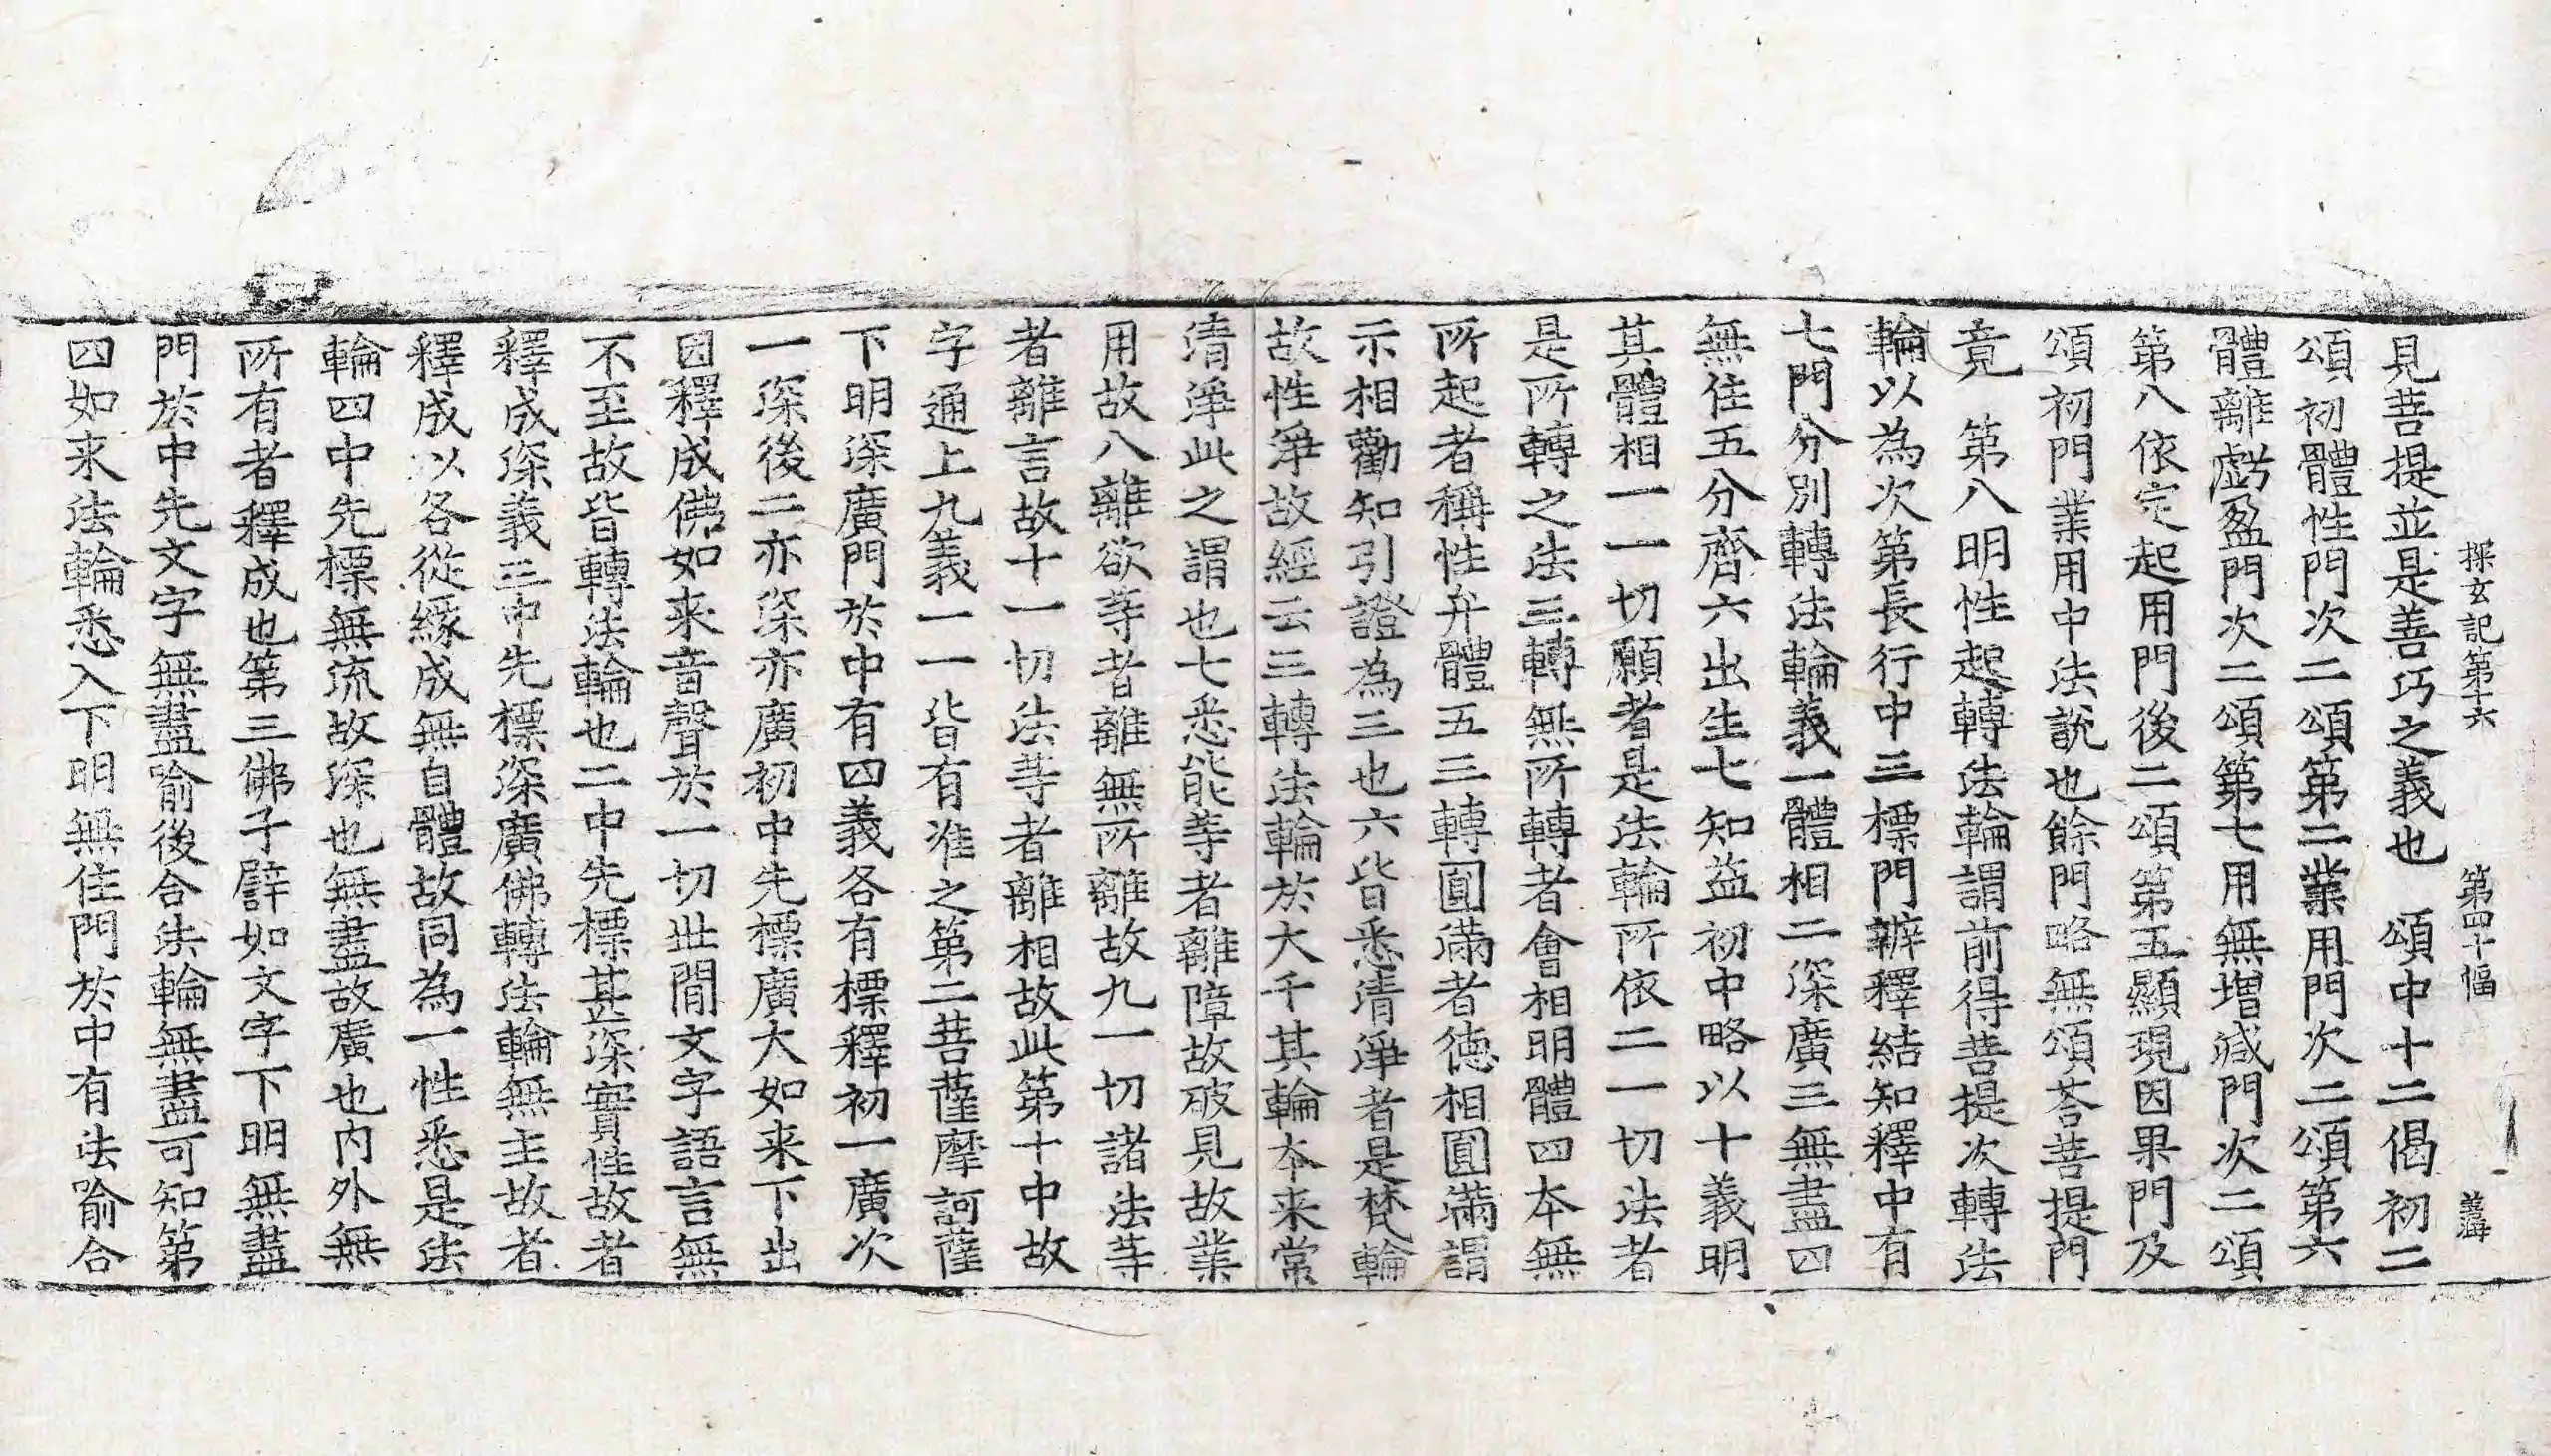 探玄記第十六 第四十幅 善海
見菩提並是善巧之義也 頌中十二偈初二
頌初體性門次二頌第二業用門次二頌第六
體離虧盈門次二頌第七用無增減門次二頌
第八依定起用門後二頌第五顯現因果門及
頌初門業用中法說也餘門略無頌荅菩提門
竟 第八明性起轉法輪謂前得菩提次轉法
輪以為次第長行中三標門辨釋結知釋中有
七門分別轉法輪義一體相二深廣三無盡四
無住五分齊六出生七知益初中略以十義明
其體相一一切願者是法輪所依二一切法者
是所轉之法三轉無所轉者會相明體四本無
所起者稱性弁體五三轉圓滿者德相圓滿謂
示相勸知引證為三也六皆悉清淨者是梵輪
故性淨故經云三轉法輪於大千其輪本来常
清淨此之謂也七悉能䓁者離障故破見故業
用故八離欲䓁者離無所離故九一切諸法䓁
者離言故十一切法䓁者離相故此第十中故
字通上九義一一皆有准之第二菩薩摩訶薩
下明深廣門於中有四義各有標釋初一廣次
一深後二亦深亦廣初中先標廣大如来下出
因釋成佛如来音聲於一切世間文字語言無
不至故皆轉法輪也二中先標甚深實性故者
釋成深義三中先標深廣佛轉法輪無主故者
釋成以各從緣成無自體故同為一性悉是法
輪四中先標無流故深也無盡故廣也内外無
所有者釋成也第三佛子譬如文字下明無盡
門於中先文字無盡喻後合法輪無盡可知第
四如来法輪悉入下明無住門於中有法喻合